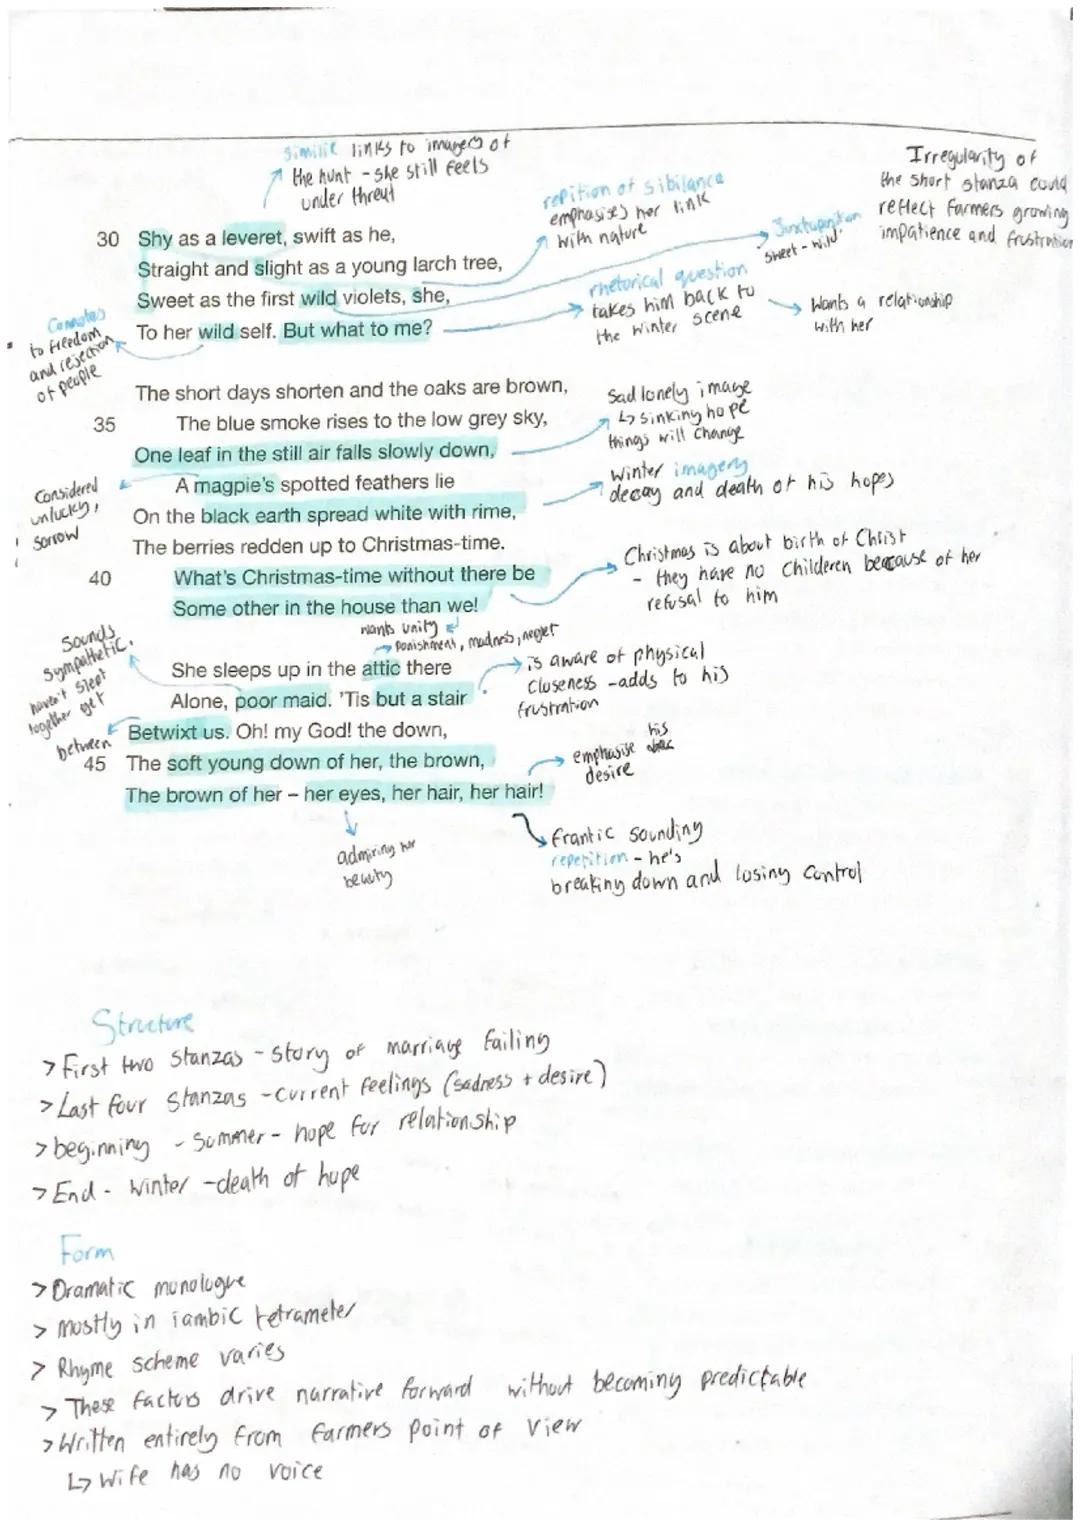 Similie links to imagery of
the hunt - she still feels
under threat
repition of sibilance
emphasises her link
with nature
Juxtaposition
'sweet - wild'
Irregularity of
the short stanza could
reflect farmers growing
impatience and frustration
30 Shy as a leveret, swift as he,
Straight and slight as a young larch tree,
Sweet as the first wild violets, she,
To her wild self. But what to me?
Connotes
to freedom
and rejection
of people
rhetorical question
takes him back to
the winter scene
Wants a relationship
with her
The short days shorten and the oaks are brown,
35 The blue smoke rises to the low grey sky,
One leaf in the still air falls slowly down,
A magpie's spotted feathers lie
On the black earth spread white with rime,
The berries redden up to Christmas-time.
40 What's Christmas-time without there be
Some other in the house than we!
Sad lonely image
↳ sinking hope
things will change
Winter imagery
decay and death of his hopes
Considered
unlucky,
sorrow
Christmas is about birth of Christ
- they have no childeren because of her
refusal to him
wants unity
punishment, madness, neglet
She sleeps up in the attic there
Alone, poor maid. 'Tis but a stair
Betwixt us. Oh! my God! the down,
45 The soft young down of her, the brown,
The brown of her – her eyes, her hair, her hair!
Sounds
sympathetic,
haven't slept
together yet
between
is aware of physical
closeness - adds to his
frustration
emphasise his
desire
admiring her
beauty
frantic sounding
repetition - he's
breaking down and losing control
Structure
> First two stanzas - story of marriage failing
> Last four stanzas - current feelings (sadness + desire)
> beginning - Summer - hope for relationship
> End - winter - death of hope
Form
> Dramatic monologue
> mostly in iambic tetrameter
> Rhyme scheme varies
> These factors drive narrative forward without becoming predictable
> Written entirely from farmers point of view
↳ Wife has no voice